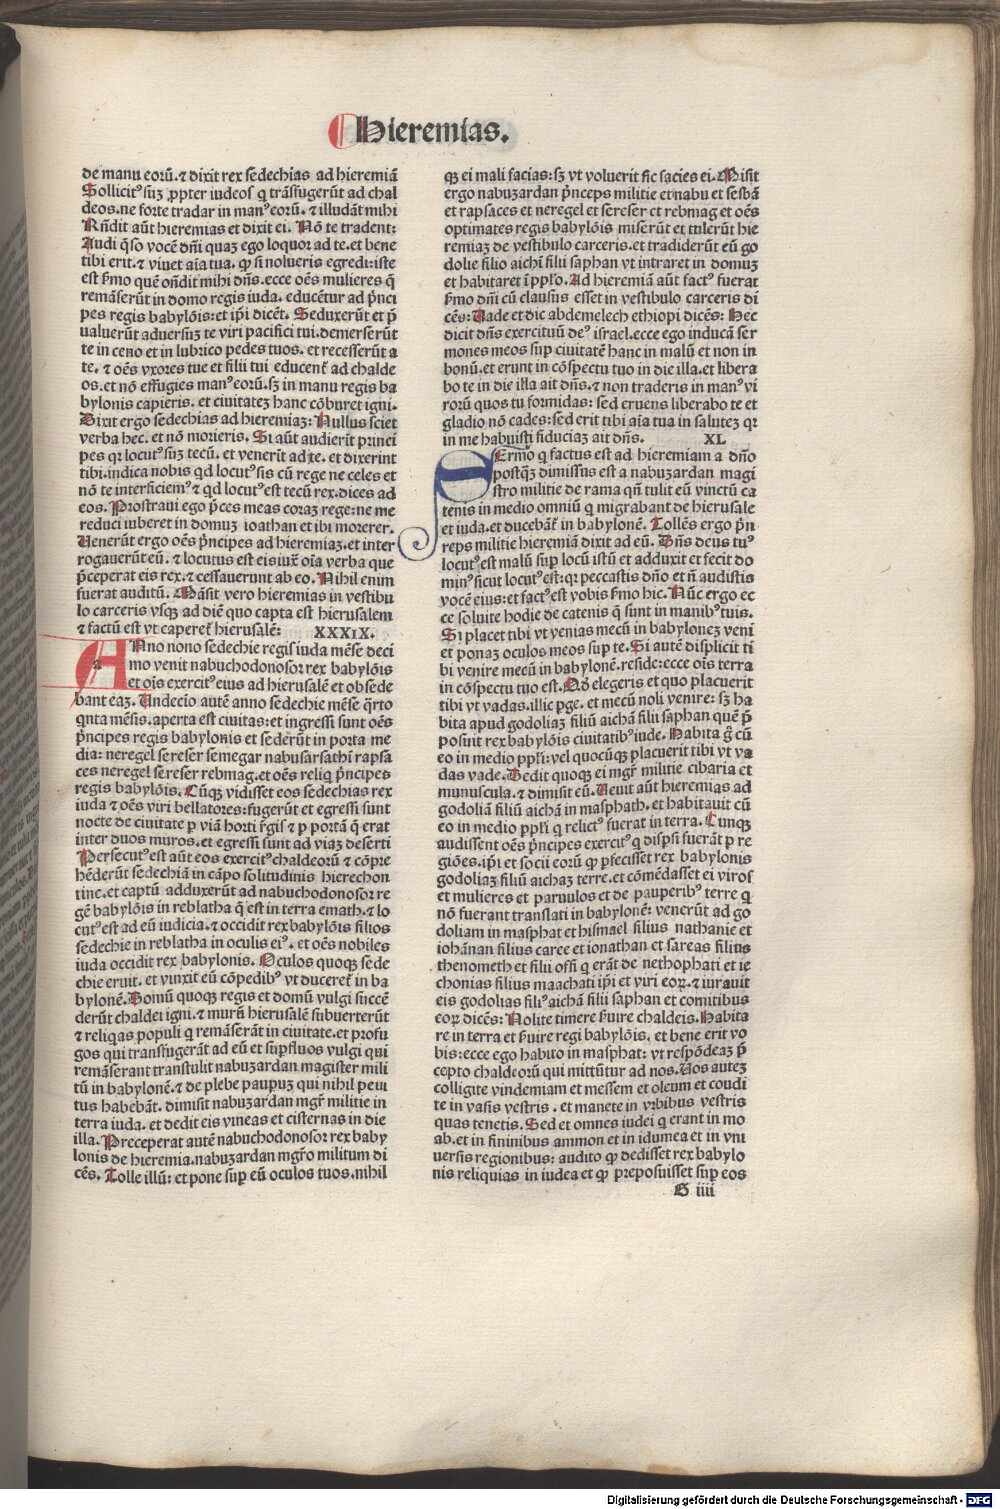 Hieremias.
de manu eorū. ⁊ dixit rex sedechias ad hieremiā
Sollicit⁹ suꝫ ꝓpter iudeos q̇ trāsfugerūt ad chal
deos. ne forte tradar in man⁹ eorū. ⁊ illudāt mihi
Rn̄dit aūt hieremias et dixit ei. Nō te tradent:
Audi q̄so vocē dn̄i quaꝫ ego loquor ad te. et bene
tibi erit. ⁊ viuet aīa tua. ꝙ si nolueris egredi: iste
est ẜmo quē on̄dit mihi dn̄s. ecce oēs mulieres q̄
remāserūt in domo regis iuda. educētur ad p̄nci
pes regis babylōis: et ip̄i dicēt. Seduxerūt et p̄
ualuerūt aduersuꝫ te viri pacifici tui. demerserūt
te in ceno et in lubrico pedes tuos. et recesserūt a
te. ⁊ oēs vxores tue et filii tui educent̄ ad chalde
os. et nō effugies man⁹ eorū. sꝫ in manu regis ba
bylonis capieris. et ciuitateꝫ hanc cōburet igni.
Dixit ergo sedechias ad hieremiaꝫ: Nullus sciet
verba hec. et nō morieris. Si aūt audierīt princi
pes qꝛ locut⁹ suꝫ tecū. et venerīt ad te. et dixerint
tibi. indica nobis qd locut⁹ sis cū rege ne celes et
nō te interficiem⁹ ⁊ qd locut⁹ est tecū rex. dices ad
eos. Prostraui ego p̄ces meas coraꝫ rege: ne me
reduci iuberet in domuꝫ ioathan et ibi morerer.
Venerūt ergo oēs p̄ncipes ad hieremiaꝫ. et inter
rogauerūt eū. ⁊ locutus est eis iuxͣ oīa verba que
p̄ceperat eis rex. ⁊ cessauerunt ab eo. Nihil enim
fuerat auditū. Māsit vero hieremias in vestibu
lo carceris vsqꝫ ad diē quo capta est hierusalem
⁊ factū est vt caperet̄ hierusalē: XXXIX.
ANno nono sedechie regis iuda mēse deci
mo venit nabuchodonosor rex babylōis
et oīs exercit⁹ eius ad hierusalē et obsede
bant eaꝫ. Undecīo autē anno sedechie mēse q̄rto
q̇nta mēsis. aperta est ciuitas: et ingressi sunt oēs
p̄ncipes regis babylonis et sederūt in porta me
dia: neregel sereser semegar nabusarsathī rapsa
ces neregel sereser rebmag. et oēs reliq̇ p̄ncipes
regis babylōis. Cūqꝫ vidisset eos sedechias rex
iuda ⁊ oēs viri bellatores: fugerūt et egressi sunt
nocte de ciuitate ꝑ viā horti r̄gis ⁊ ꝑ portā q̄ erat
inter duos muros. et egressi sunt ad viaꝫ deserti
Persecut⁹ est aūt eos exercit⁹ chaldeorū ⁊ cōpre
hēderūt sedechiā in cāpo solitudinis hierechon
tine. et captū adduxerūt ad nabuchodonosor re
gē babylōis in reblatha q̄ est in terra emath. ⁊ lo
cut⁹ est ad eū iudicia. ⁊ occidit rex babylōis filios
sedechie in reblatha in oculis ei⁹. et oēs nobiles
iuda occidit rex babylonis. Oculos quoqꝫ sede
chie eruit. et vinxit eū cōpedib⁹ vt duceret̄ in ba
bylonē. Domū quoqꝫ regis et domū vulgi succē
derūt chaldei igni. ⁊ murū hierusalē subuerterūt
⁊ reliqas populi q̇ remāserāt in ciuitate. et profu
gos qui transfugerāt ad eū et suꝑfluos vulgi qui
remāserant transtulit nabuzardan magister mili
tū in babylonē. ⁊ de plebe pauꝑuꝫ qui nihil peni
tus habebāt. dimisit nabuzardan mgr̄ militie in
terra iuda. et dedit eis vineas et cisternas in die
illa. Preceperat autē nabuchodonosor rex baby
lonis de hieremia. nabuzardan mgr̄o militum di
cēs. Tolle illū: et pone suꝑ eū oculos tuos. nihil
qꝫ ei mali facias: sꝫ vt voluerit sic facies ei. Misit
ergo nabuzardan p̄nceps militie et nabu et sesbā
et rapsaces et neregel et sereser et rebmag et oēs
optimates regis babylōis miserūt et tulerūt hie
remiaꝫ de vestibulo carceris. et tradiderūt eū go
dolie filio aichī filii saphan vt intraret in domuꝫ
et habitaret ī pp̄lo. Ad hieremiā aūt fact⁹ fuerat
ẜmo dn̄i cū clausus esset in vestibulo carceris di
cēs: Uade et dic abdemelech ethiopi dicēs: Hec
dicit dn̄s exercituū de⁹ israel. ecce ego inducā ser
mones meos suꝑ ciuitatē hanc in malū et non in
bonū. et erunt in cōspectu tuo in die illa. et libera
bo te in die illa ait dn̄s. ⁊ non traderis in man⁹ vi
rorū quos tu formidas: sed eruens liberabo te et
gladio nō cades: sed erit tibi aīa tua in saluteꝫ qꝛ
in me habuisti fiduciaꝫ ait dn̄s. XL
SErmo q̇ factus est ad hieremiam a dn̄o
postq̄ꝫ dimissus est a nabuzardan magi
stro militie de rama qn̄ tulit eū vinctū ca
tenis in medio omniū q̇ migrabant de hierusale
et iuda. et ducebāt̄ in babylonē. Tollēs ergo p̄n
ceps militie hieremiā dixit ad eū. Dn̄s deus tu⁹
locut⁹ est malū suꝑ locū istū et adduxit et fecit do
min⁹ sicut locut⁹ est: qꝛ peccastis dn̄o et n̄ audistis
vocē eius: et fact⁹ est vobis ẜmo hic. Nūc ergo ec
ce solui te hodie de catenis q̄ sunt in manib⁹ tuis.
Si placet tibi vt venias mecū in babyloneꝫ veni
et ponaꝫ oculos meos suꝑ te. Si autē displicit ti
bi venire mecū in babylonē. reside: ecce oīs terra
in cōspectu tuo est. Qd̄ elegeris et quo placuerit
tibi vt vadas. illic ꝑge. et mecū noli venire: sꝫ ha
bita apud godoliaꝫ filiū aichā filii saphan quē p̄
posuit rex babylōis ciuitatib⁹ iude. Habita gͦ cū
eo in medio pp̄li: vel quocūqꝫ placuerit tibi vt va
das vade. Dedit quoqꝫ ei mgr̄ militie cibaria et
munuscula. ⁊ dimisit eū. Uenit aūt hieremias ad
godoliā filiū aichā in masphath. et habitauit cū
eo in medio pp̄li q̇ relict⁹ fuerat in terra. Cunqꝫ
audissent oēs p̄ncipes exercit⁹ q̇ disꝑsi fuerāt ꝑ re
giōes. ip̄i et socii eorū qꝙ p̄fecisset rex babylonis
godoliaꝫ filiū aichaꝫ terre. et cōmēdasset ei viros
et mulieres et paruulos et de pauperib⁹ terre q̇
nō fuerant translati in babylonē: venerūt ad go
doliam in masphat et hismael filius nathanie et
iohānan filius caree et ionathan et sareas filius
thenometh et filii offi q̇ erāt de nethophati et ie
chonias filius maachati ip̄i et viri eoꝝ. ⁊ iurauit
eis godolias fili⁹ aichā filii saphan et comitibus
eoꝝ dicēs: Nolite timere ẜuire chaldeis. Habita
re in terra et ẜuire regi babylōis. et bene erit vo
bis: ecce ego habito in masphat: vt respōdeaꝫ p̄
cepto chaldeorū qui mittūtur ad nos. Uos auteꝫ
colligite vindemiam et messem et oleum et condi
te in vasis vestris. et manete in vrbibus vestris
quas tenetis. Sed et omnes iudei q̇ erant in mo
ab. et in fininibus ammon et in idumea et in vni
uersis regionibus: audito ꝙ dedisset rex babylo
nis reliquias in iudea et ꝙ preposuisset suꝑ eos
G iiii
Digitalisierung gefördert durch die Deutsche Forschungsgemeinschaft - DFG